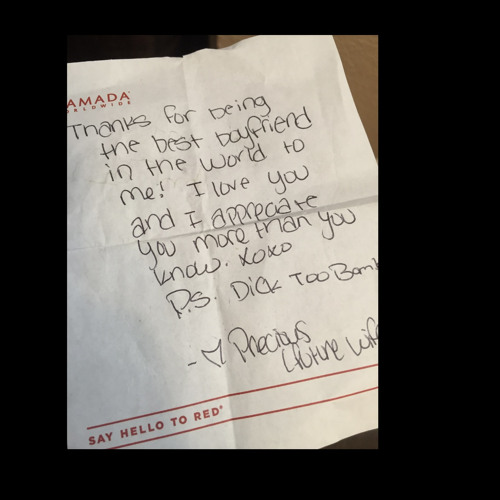 AMADA
WORLDWIDE
Thanks for being
the best boyfriend
in the world to
me! I love you
and I appreciate
you more than you
know. xoxo
P.S. Dick Too Bomb
- Precious
future wife
SAY HELLO TO RED®